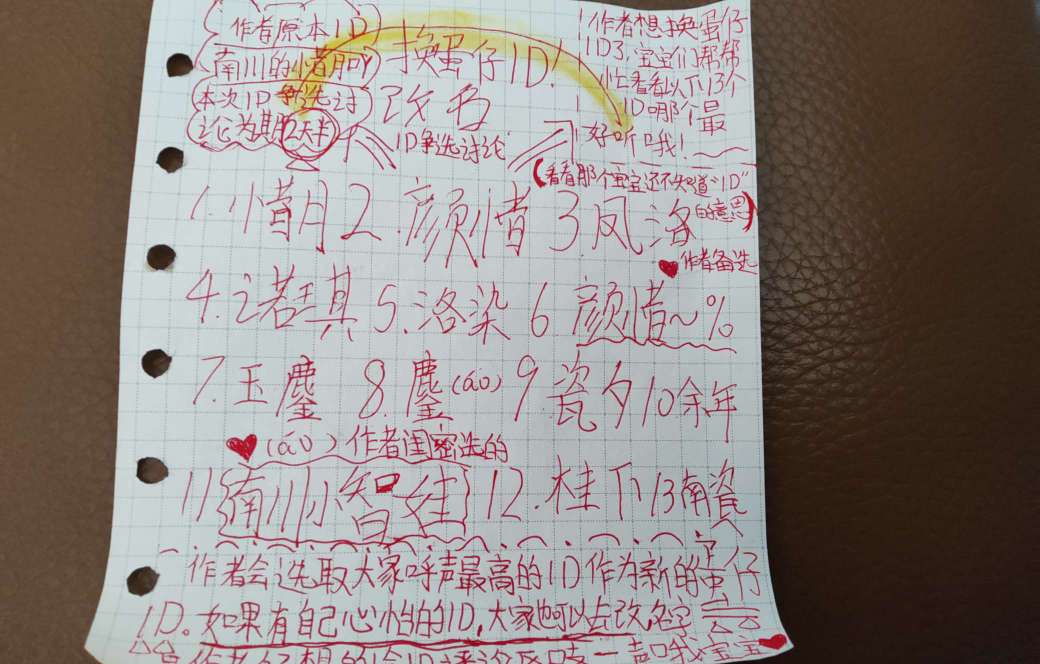 作者原本ID
南川的惜月吖
本次ID争选讨
论为期2天半
换蛋仔ID!
改名
ID争选讨论
作者想换蛋仔
ID3,宝宝们帮帮
忙看看以下13个
ID哪个最
好听哦!
(看看那个宝宝还不知道“ID”
的意思)
1.惜月 2.颜惜 3风洛
作者备选
4.之诺其 5.洛染 6 颜惜~%
7.玉鏖 8.鏖(áo) 9瓷夕 10余年
(áo) 作者闺密选的
11南川小智娃 12.桂下 13南瓷
作者会选取大家呼声最高的ID作为新的蛋仔
ID。如果有自己心怡的ID,大家也可以去改名字